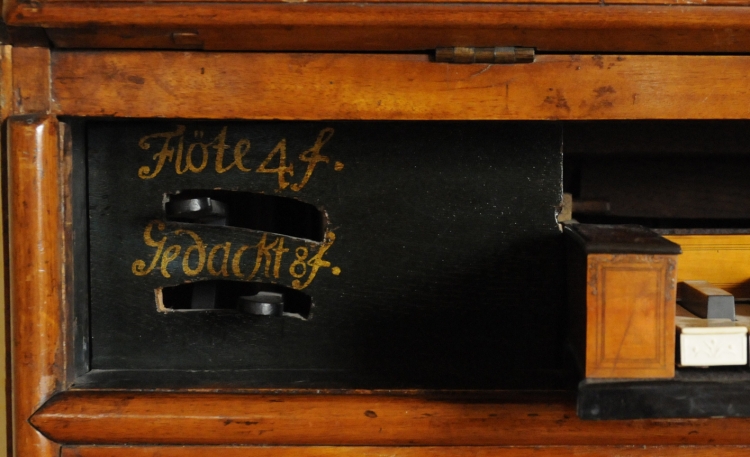 Flöte 4 f.
Gedackt 8 f.